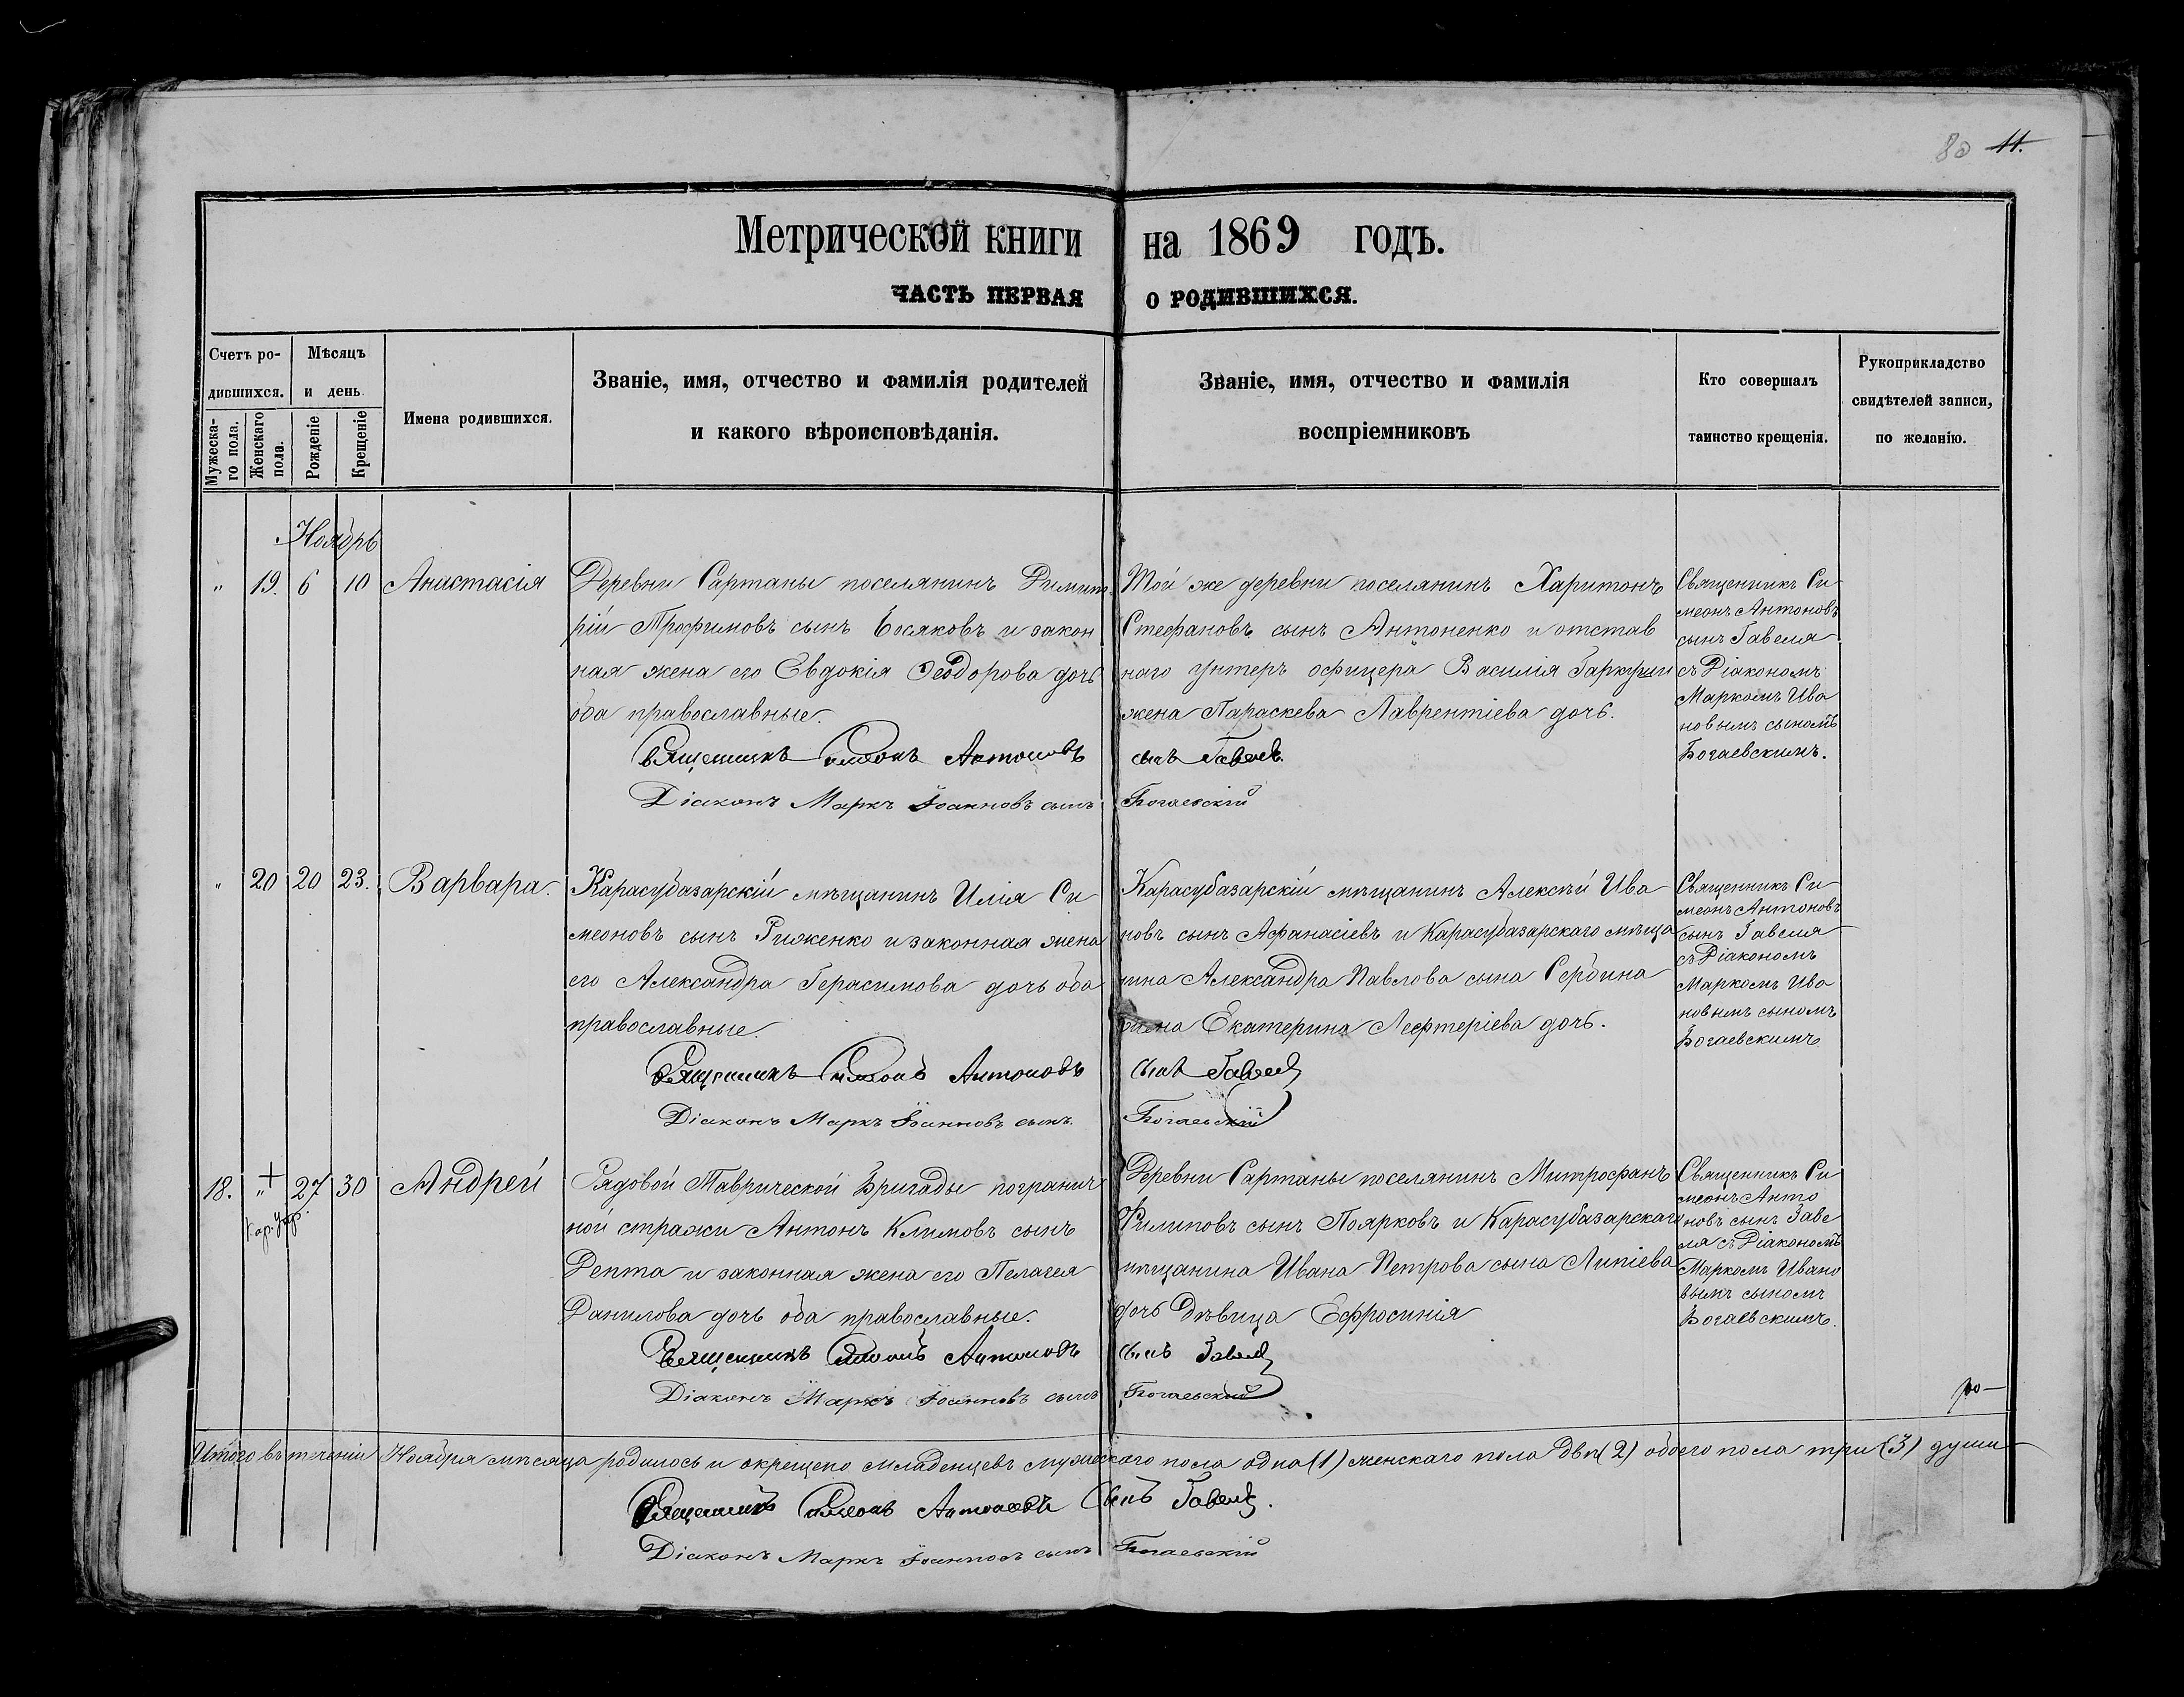 80 11.
Метрической книги на 1869 годъ.
ЧАСТЬ ПЕРВАЯ О РОДИВШИХСЯ.
Счетъ ро-
дившихся.
Мѣсяцъ
и день.
Мужеска-
го пола.
Женскаго
пола.
Рожденіе
Крещеніе
Имена родившихся.
Званіе, имя, отчество и фамилія родителей
и какого вѣроисповѣданія.
Званіе, имя, отчество и фамилія
воспріемниковъ
Кто совершалъ
таинство крещенія.
Рукоприкладство
свидѣтелей записи,
по желанію.
Ноябрь
" 19. 6 10 Анастасія
Деревни Сартаны поселянинъ Димит
рій Трофимовъ сынъ Босяковъ и закон
ная жена его Евдокія Ѳеодорова дочь
оба православные.
Той же деревни поселянинъ Харитонъ
Стефановъ сынъ Антоненко и отстав
наго унтеръ офицера Василія
жена Параскева Лаврентіева дочь.
Священникъ Си
меонъ Антоновъ
сынъ Гавеля
съ Діакономъ
Маркомъ Ива
новымъ сыномъ
Богаевскимъ.
Священникъ Симеонъ Антоновъ сынъ Гавель
Діаконъ Маркъ Іоанновъ сынъ Богаевскій
" 20 20 23. Варвара.
Карасубазарскій мѣщанинъ Илія Си
меоновъ сынъ Риженко и законная жена
его Александра Герасимова дочь оба
православные.
Карасубазарскій мѣщанинъ Алексѣй Ива
новъ сынъ Афанасіевъ и Карасубазарскаго мѣща
нина Александра Павлова сына Сербина
жена Екатерина Лефтеріева дочь.
Священникъ Си
меонъ Антоновъ
сынъ Гавеля
съ Діакономъ
Маркомъ Ива
новымъ сыномъ
Богаевскимъ
Священникъ Симеонъ Антоновъ сынъ Гавель
Діаконъ Маркъ Іоанновъ сынъ Богаевскій
18. " + 27 30 Андрей
Рядовой Таврической Бригады погранич
ной стражи Антонъ Климовъ сынъ
Репта и законная жена его Пелагея
Данилова дочь оба православные.
Деревни Сартаны поселянинъ Митрофанъ
Филиповъ сынъ Поярковъ и Карасубазарскаго
мѣщанина Ивана Петрова сына Липіева
дочь Дѣвица Ефросинія
Священникъ Си
меонъ Анто
новъ сынъ Гаве
ля съ Діакономъ
Маркомъ Ивано
вымъ сыномъ
Богаевскимъ.
Священникъ Симеонъ Антоновъ сынъ Гавель
Діаконъ Маркъ Іоанновъ сынъ Богаевскій
Итого въ теченіи Ноября мѣсяца родилось и окрещено младенцевъ мужескаго пола одна (1) женскаго пола двѣ (2) обоего пола три (3) души
Священникъ Симеонъ Антоновъ сынъ Гавель.
Діаконъ Маркъ Іоанновъ сынъ Богаевскій